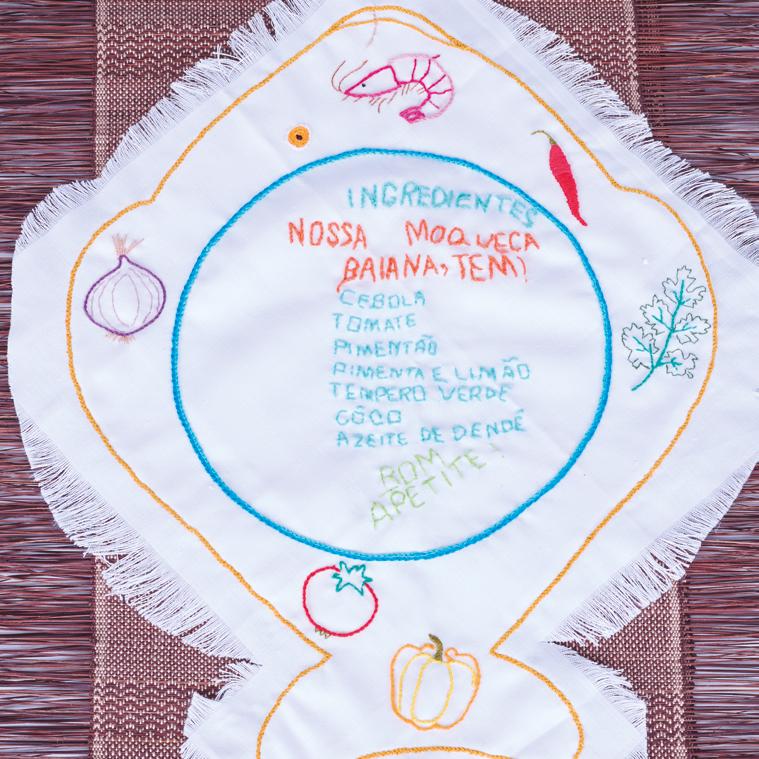 INGREDIENTES
NOSSA MOQUECA
BAIANA, TEM)
CEBOLA
TOMATE
PIMENTÃO
PIMENTA E LIMÃO
TEMPERO VERDE
CÔCO
AZEITE DE DENDÊ
BOM
APETITE!